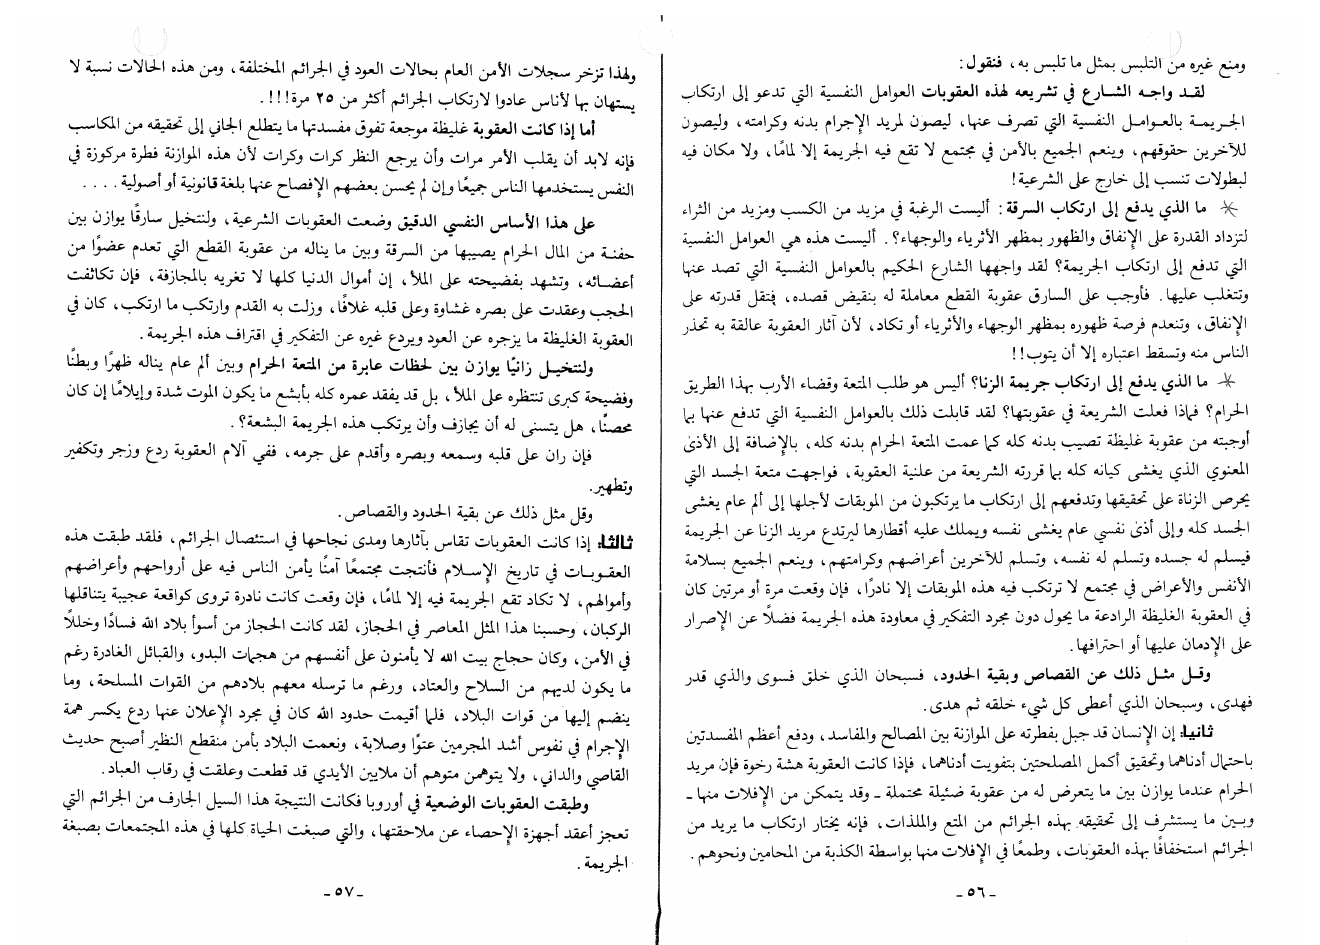 ومنع غيره من التلبس بمثل ما تلبس به، فنقول:
لقد واجه الشارع في تشريعه لهذه العقوبات العوامل النفسية التي تدعو إلى ارتكاب
الجريمة بالعوامل النفسية التي تصرف عنها، ليصون لمريد الإجرام بدنه وكرامته، وليصون
للآخرين حقوقهم، وينعم الجميع بالأمن في مجتمع لا تقع فيه الجريمة إلا لمامًا، ولا مكان فيه
لبطولات تنسب إلى خارج على الشرعية!
* ما الذي يدفع إلى ارتكاب السرقة: أليست الرغبة في مزيد من الكسب ومزيد من الثراء
لتزداد القدرة على الإنفاق والظهور بمظهر الأثرياء والوجهاء؟. أليست هذه هي العوامل النفسية
التي تدفع إلى ارتكاب الجريمة؟ لقد واجهها الشارع الحكيم بالعوامل النفسية التي تصد عنها
وتتغلب عليها. فأوجب على السارق عقوبة القطع معاملة له بنقيض قصده، فتقل قدرته على
الإنفاق، وتنعدم فرصة ظهوره بمظهر الوجهاء والأثرياء أو تكاد، لأن آثار العقوبة عالقة به تحذر
الناس منه وتسقط اعتباره إلا أن يتوب!!
* ما الذي يدفع إلى ارتكاب جريمة الزنا؟ أليس هو طلب المتعة وقضاء الأرب بهذا الطريق
الحرام؟ فماذا فعلت الشريعة في عقوبتها؟ لقد قابلت ذلك بالعوامل النفسية التي تدفع عنها بما
أوجبته من عقوبة غليظة تصيب بدنه كله كما عمت المتعة الحرام بدنه كله، بالإضافة إلى الأذىٰ
المعنوي الذي يغشى كيانه كله بما قررته الشريعة من علنية العقوبة، فواجهت متعة الجسد التي
يحرص الزناة على تحقيقها وتدفعهم إلى ارتكاب ما يرتكبون من الموبقات لأجلها إلى ألم عام يغشى
الجسد كله وإلى أذىٰ نفسي عام يغشى نفسه ويملك عليه أقطارها ليرتدع مريد الزنا عن الجريمة
فيسلم له جسده وتسلم له نفسه، وتسلم للآخرين أعراضهم وكرامتهم، وينعم الجميع بسلامة
الأنفس والأعراض في مجتمع لا ترتكب فيه هذه الموبقات إلا نادرًا، فإن وقعت مرة أو مرتين كان
في العقوبة الغليظة الرادعة ما يحول دون مجرد التفكير في معاودة هذه الجريمة فضلًا عن الإصرار
على الإدمان عليها أو احترافها.
وقل مثل ذلك عن القصاص وبقية الحدود، فسبحان الذي خلق فسوى والذي قدر
فهدى، وسبحان الذي أعطى كل شيء خلقه ثم هدى.
ثانيا: إن الإنسان قد جبل بفطرته على الموازنة بين المصالح والمفاسد، ودفع أعظم المفسدتين
باحتمال أدناهما وتحقيق أكمل المصلحتين بتفويت أدناهما، فإذا كانت العقوبة هشة رخوة فإن مريد
الحرام عندما يوازن بين ما يتعرض له من عقوبة ضئيلة محتملة - وقد يتمكن من الإفلات منها -
وبين ما يستشرف إلى تحقيقه بهذه الجرائم من المتع والملذات، فإنه يختار ارتكاب ما يريد من
الجرائم استخفافًا بهذه العقوبات، وطمعًا في الإفلات منها بواسطة الكذبة من المحامين ونحوهم.
- ٥٦ -
ولهذا تزخر سجلات الأمن العام بحالات العود في الجرائم المختلفة، ومن هذه الحالات نسبة لا
يستهان بها لأناس عادوا لارتكاب الجرائم أكثر من ٢٥ مرة!!!.
أما إذا كانت العقوبة غليظة موجعة تفوق مفسدتها ما يتطلع الجاني إلى تحقيقه من المكاسب
فإنه لابد أن يقلب الأمر مرات وأن يرجع النظر كرات وكرات لأن هذه الموازنة فطرة مركوزة في
النفس يستخدمها الناس جميعًا وإن لم يحسن بعضهم الإفصاح عنها بلغة قانونية أو أصولية ....
على هذا الأساس النفسي الدقيق وضعت العقوبات الشرعية، ولنتخيل سارقًا يوازن بين
حفنة من المال الحرام يصيبها من السرقة وبين ما يناله من عقوبة القطع التي تعدم عضوًا من
أعضائه، وتشهد بفضيحته على الملأ، إن أموال الدنيا كلها لا تغريه بالمجازفة، فإن تكاثفت
الحجب وعقدت على بصره غشاوة وعلى قلبه غلافًا، وزلت به القدم وارتكب ما ارتكب، كان في
العقوبة الغليظة ما يزجره عن العود ويردع غيره عن التفكير في اقتراف هذه الجريمة.
ولنتخيل زانيًا يوازن بين لحظات عابرة من المتعة الحرام وبين ألم عام يناله ظهرًا وبطنًا
وفضيحة كبرى تنتظره على الملأ، بل قد يفقد عمره كله بأبشع ما يكون الموت شدة وإيلامًا إن كان
محصنًا، هل يتسنى له أن يجازف وأن يرتكب هذه الجريمة البشعة؟.
فإن ران على قلبه وسمعه وبصره وأقدم على جرمه، ففي آلام العقوبة ردع وزجر وتكفير
وتطهير.
وقل مثل ذلك عن بقية الحدود والقصاص.
ثالثا: إذا كانت العقوبات تقاس بآثارها ومدى نجاحها في استئصال الجرائم، فلقد طبقت هذه
العقوبات في تاريخ الإسلام فأنتجت مجتمعًا آمنًا يأمن الناس فيه على أرواحهم وأعراضهم
وأموالهم، لا تكاد تقع الجريمة فيه إلا لمامًا، فإن وقعت كانت نادرة تروى كواقعة عجيبة يتناقلها
الركبان، وحسبنا هذا المثل المعاصر في الحجاز، لقد كانت الحجاز من أسوأ بلاد الله فسادًا وخللًا
في الأمن، وكان حجاج بيت الله لا يأمنون على أنفسهم من هجمات البدو، والقبائل الغادرة رغم
ما يكون لديهم من السلاح والعتاد، ورغم ما ترسله معهم بلادهم من القوات المسلحة، وما
ينضم إليها من قوات البلاد، فلما أقيمت حدود الله كان في مجرد الإعلان عنها ردع يكسر همة
الإجرام في نفوس أشد المجرمين عتوًا وصلابة، ونعمت البلاد بأمن منقطع النظير أصبح حديث
القاصي والداني، ولا يتوهمن متوهم أن ملايين الأيدي قد قطعت وعلقت في رقاب العباد.
وطبقت العقوبات الوضعية في أوروبا فكانت النتيجة هذا السيل الجارف من الجرائم التي
تعجز أعقد أجهزة الإحصاء عن ملاحقتها، والتي صبغت الحياة كلها في هذه المجتمعات بصبغة
الجريمة.
- ٥٧ -